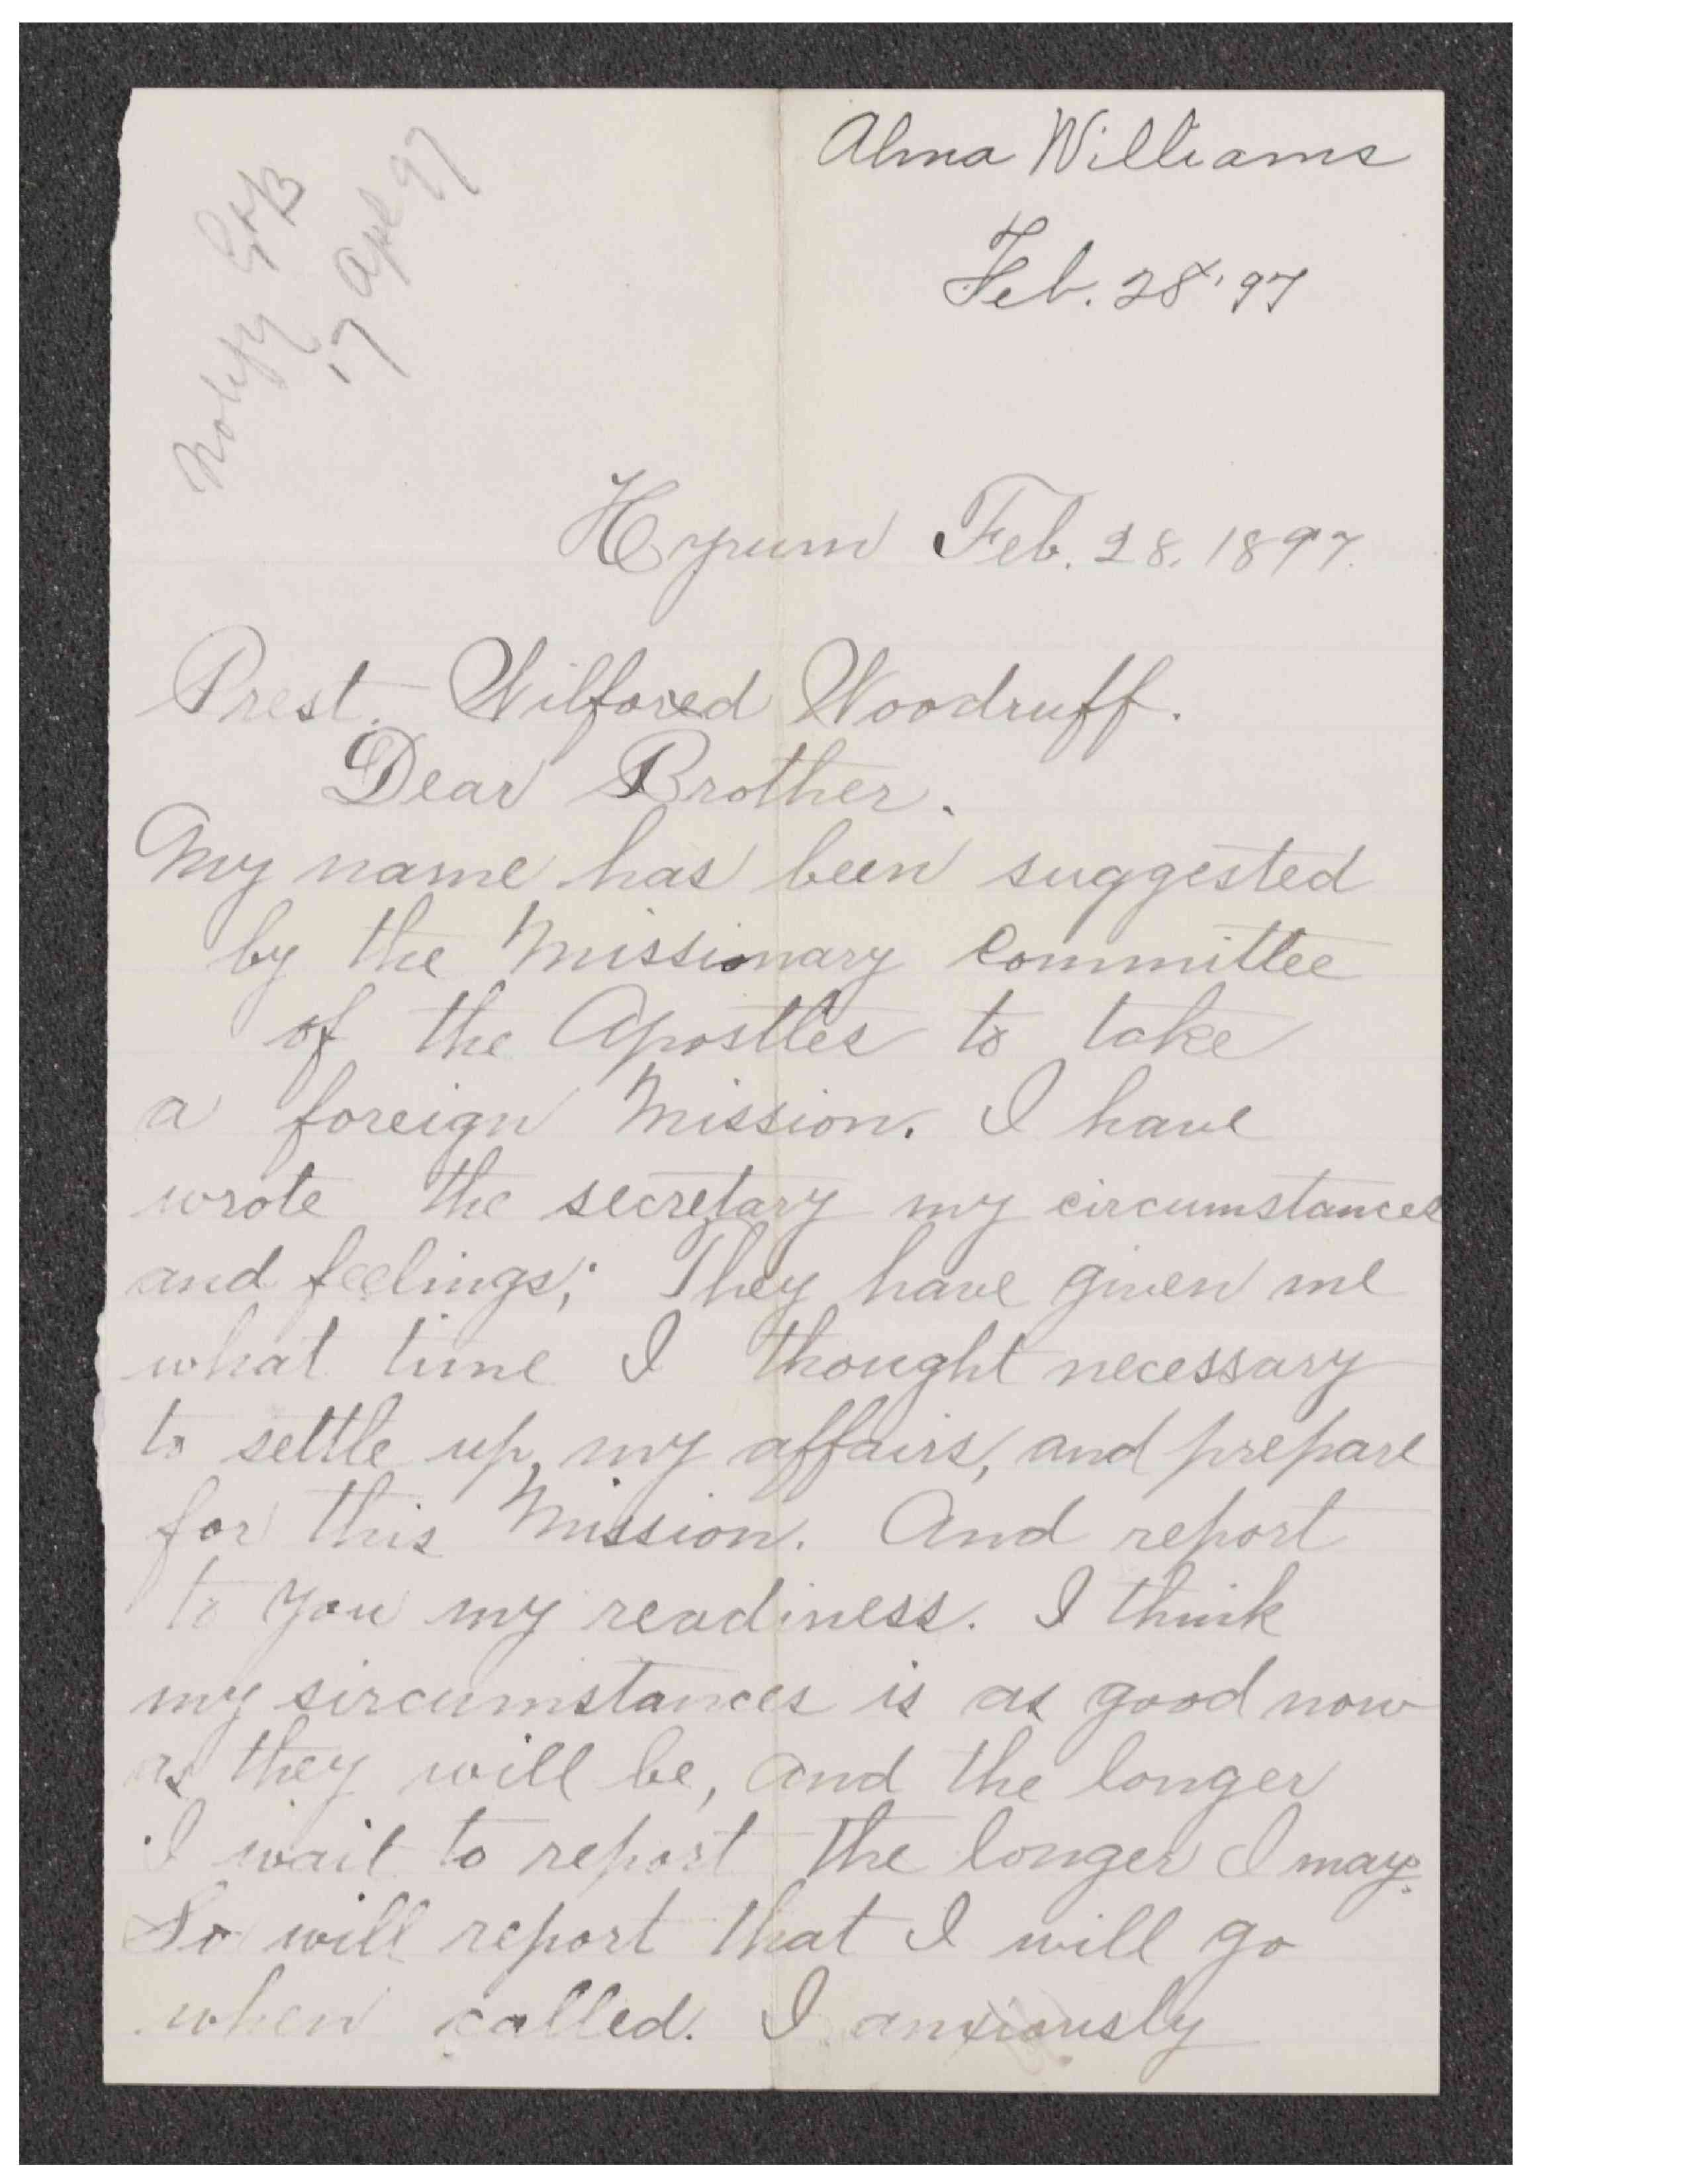 Alma Williams
Feb. 28 '97
Notify
17 Apl 97
Hyrum Feb. 28. 1897.
Prest. Wilfored Woodruff.
Dear Brother.
My name has been suggested
by the Missionary Committee
of the Apostles to take
a foreign Mission. I have
wrote the secretary my circumstances
and feelings; They have given me
what time I thought necessary
to settle up, my affairs, and prepare
for this Mission. And report
to you my readiness. I think
my sircumstances is as good now
as they will be, and the longer
I wait to report the longer I may.
So will report that I will go
when called. I anxiously